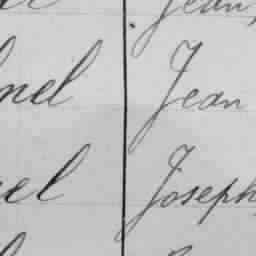 Jean,
nel Jean
el Joseph